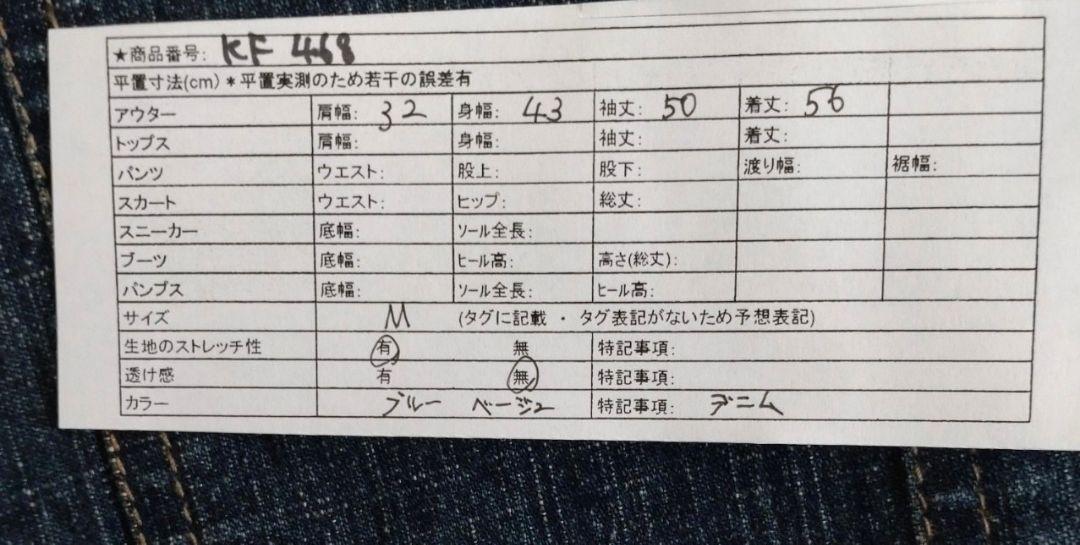 ★商品番号: KF 468
平置寸法(cm)*平置実測のため若干の誤差有
アウター 肩幅: 32 身幅: 43 袖丈: 50 着丈: 56
トップス 肩幅: 身幅: 袖丈: 着丈:
パンツ ウエスト: 股上: 股下: 渡り幅: 裾幅:
スカート ウエスト: ヒップ: 総丈:
スニーカー 底幅: ソール全長:
ブーツ 底幅: ヒール高: 高さ(総丈):
パンプス 底幅: ソール全長: ヒール高:
サイズ M (タグに記載 ・ タグ表記がないため予想表記)
生地のストレッチ性 有 無 特記事項:
透け感 有 無 特記事項:
カラー ブルー ベージュ 特記事項: デニム